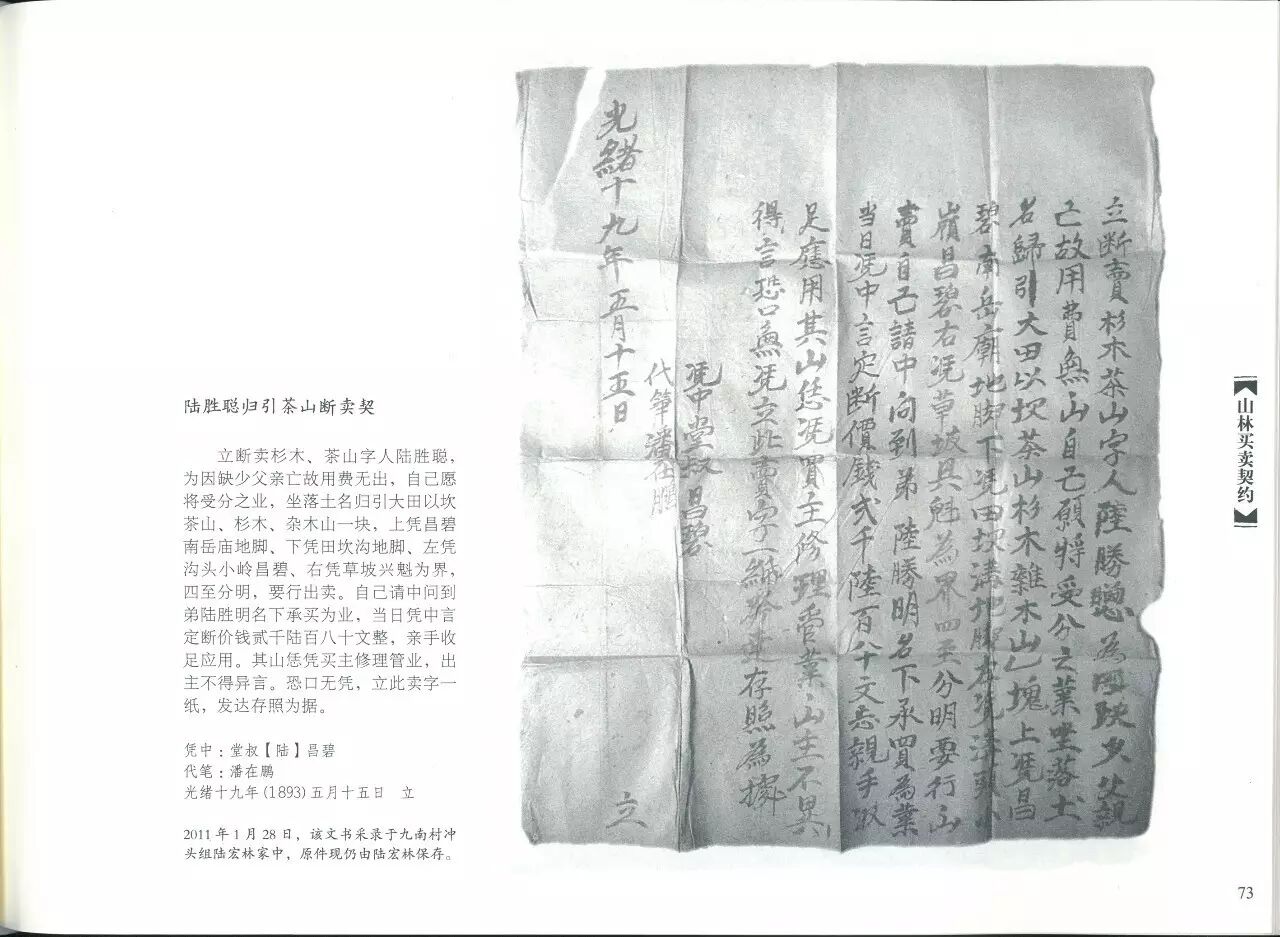 陆胜聪归引茶山断卖契
立断卖杉木、茶山字人陆胜聪，
为因缺少父亲亡故用费无出，自己愿
将受分之业，坐落土名归引大田以坎
茶山、杉木、杂木山一块，上凭昌碧
南岳庙地脚、下凭田坎沟地脚、左凭
沟头小岭昌碧、右凭草坡兴魁为界，
四至分明，要行出卖。自己请中问到
弟陆胜明名下承买为业，当日凭中言
定断价钱贰千陆百八十文整，亲手收
足应用。其山恁凭买主修理管业，出
主不得异言。恐口无凭，立此卖字一
纸，发达存照为据。
凭中：堂叔【陆】昌碧
代笔：潘在鹏
光绪十九年(1893)五月十五日 立
2011年1月28日，该文书采录于九南村冲
头组陆宏林家中，原件现仍由陆宏林保存。
立断賣杉木茶山字人陸勝聰為因缺少父親
亡故用費無山自己願將受分之業坐落土
名歸引大田以坎茶山杉木雜木山乙塊上凴昌
碧南岳廟地脚下凴田坎溝地脚左凴溝頭小
嶺昌碧右凴草坡具魁為界四至分明要行山
賣自己請中向到弟陸勝明名下承買為業
当日凴中言定断價錢弍千陸百八十文親手收
足應用其山恁凴買主修理管業山主不異
得言恐口無凴立此賣字一紙存照為據
凴中堂叔昌碧
代筆潘在鵬
光緒十九年五月十五日 立
【山林买卖契约】
73